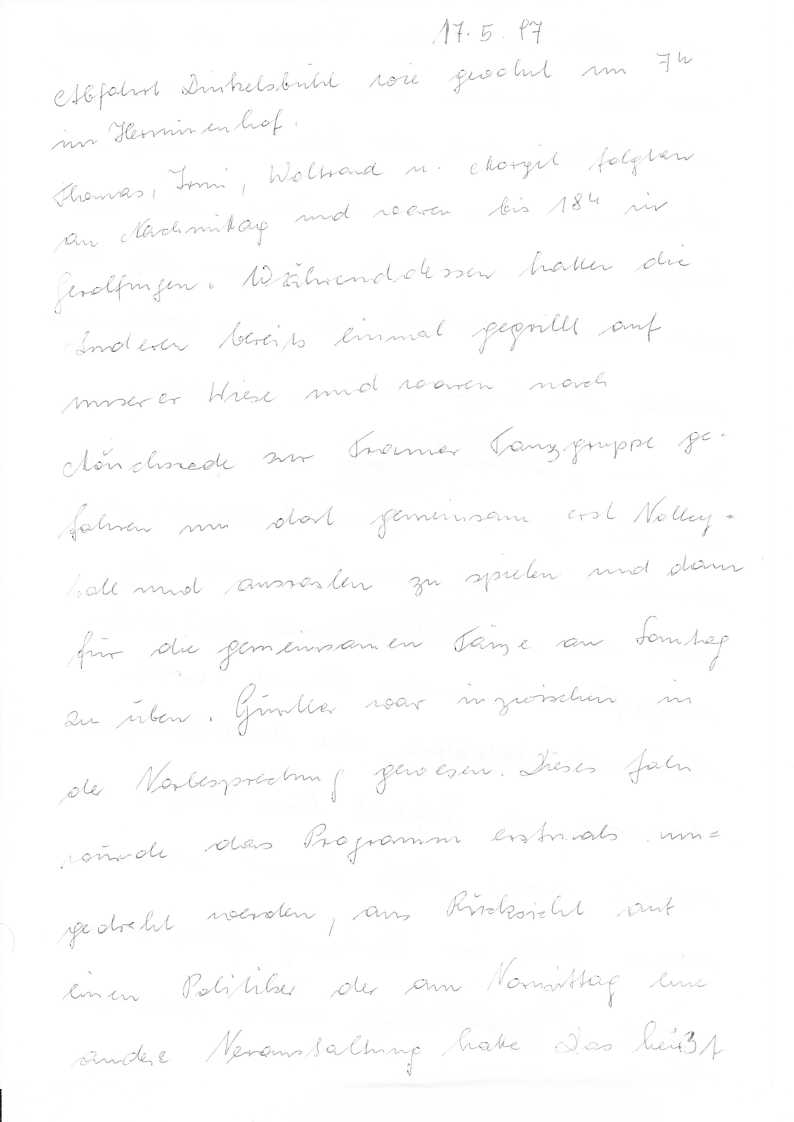 17. 5. 97
Abfahrt Dinkelsbühl wie gewohnt um 7 h
im Herminenhof.
Thomas, Irmi, Waltraud u. Margit folgten
am Nachmittag und waren bis 18 h in
Gerolfingen. Währenddessen hatten die
Anderen bereits einmal gegrillt auf
unserer Wiese und waren nach
Mönchsrode zur Tanzgruppe ge-
fahren um dort gemeinsam erst Volley-
ball und zu spielen und dann
für die gemeinsamen Tänze am Sonntag
zu üben. Günther war inzwischen in
der Vorbesprechung gewesen. Dieses Jahr
würde das Programm erstmals um=
gedreht werden, aus Rücksicht auf
einen Politiker der am Vormittag eine
andere Veranstaltung hatte Das heißt